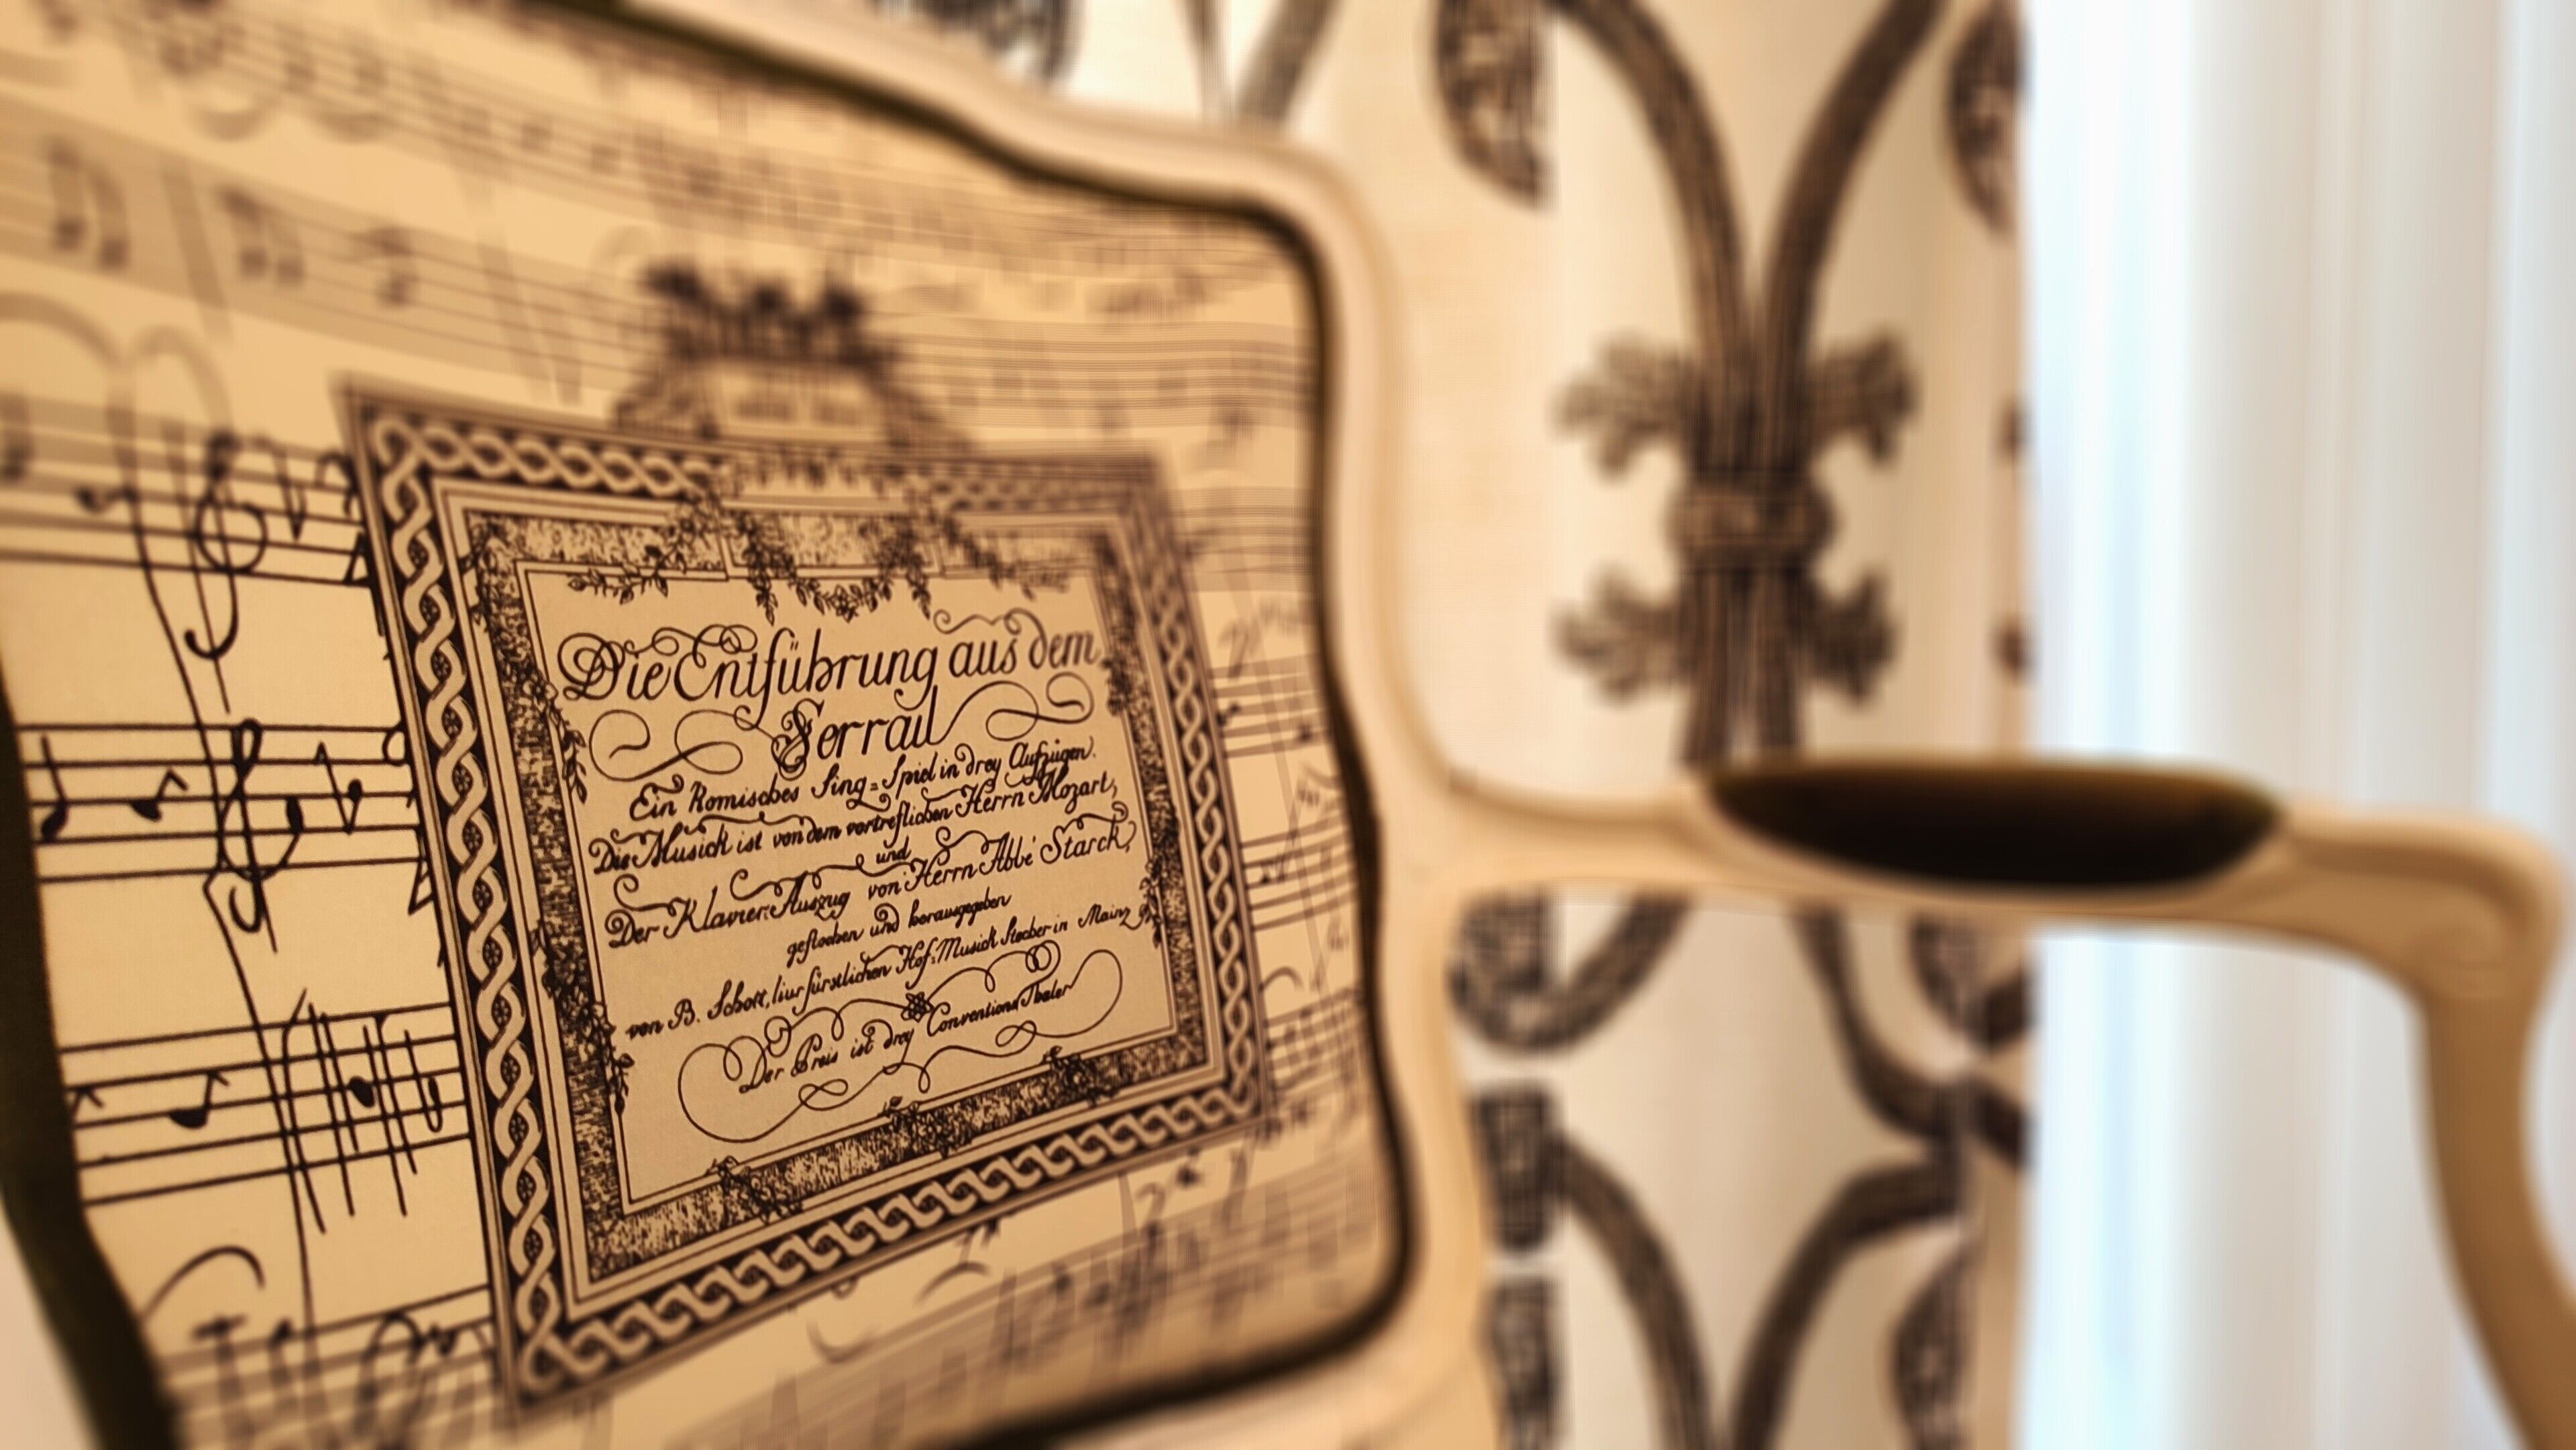 Die Entführung aus dem
Serrail
Ein Komisches Sing=Spiel in drey Aufzügen.
Die Musick ist von dem vortreflichen Herrn Mozart,
und
Der Klavier=Auszug von Herrn Abbé Starck,
gestochen und herausgegeben
von B. Schott, fürstlichen Hof=Musick Stecher in Mainz
Der Preis ist drey Conventions Thaler